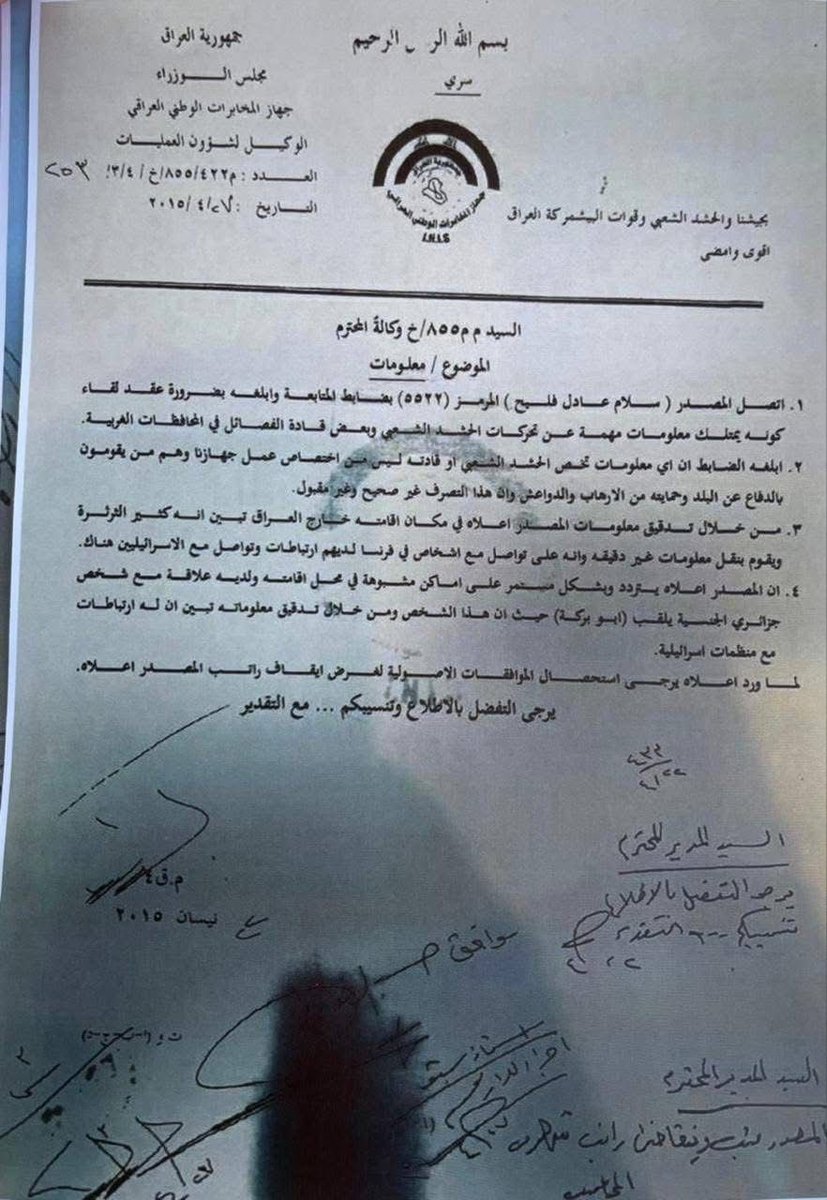 بسم الله الر من الرحيم
سري
جمهورية العراق
مجلس الـوزراء
جهاز المخابرات الوطني العراقي
الوكيل لشؤون العمليات
العـدد : م٨٥٥/٤٢٢/خ/٣/٤/ ٢٥٣
التاريخ : / ٤ /٢٠١٥
جمهورية العراق
جهاز المخابرات الوطني العراقي
I.N.I.S
بجيشنا والحشد الشعبي وقوات البيشمركة العراق
اقوى وامضى
السيد م م٨٥٥/خ وكالةً المحترم
الموضوع / معلومات
١. اتصل المصدر ( سلام عادل فليح ) المرمز (٥٥٢٢) بضابط المتابعة وابلغه بضرورة عقد لقاء
كونه يمتلك معلومات مهمة عن تحركات الحشد الشعبي وبعض قادة الفصائل في المحافظات الغربية.
٢. ابلغه الضابط ان اي معلومات تخص الحشد الشعبي او قادته ليس من اختصاص عمل جهازنا وهم من يقومون
بالدفاع عن البلد وحمايته من الارهاب والدواعش وان هذا التصرف غير صحيح وغير مقبول.
٣. من خلال تدقيق معلومات المصدر اعلاه في مكان اقامته خارج العراق تبين انه كثير الثرثرة
ويقوم بنقل معلومات غير دقيقه وانه على تواصل مع اشخاص في فرنسا لديهم ارتباطات وتواصل مع الاسرائيليين هناك.
٤. ان المصدر اعلاه يتردد وبشكل مستمر على اماكن مشبوهة في محل اقامته ولديه علاقة مع شخص
جزائري الجنسية يلقب (ابو بركة) حيث ان هذا الشخص ومن خلال تدقيق معلوماته تبين ان له ارتباطات
مع منظمات اسرائيلية.
لما ورد اعلاه يرجى استحصال الموافقات الاصولية لغرض ايقاف راتب المصدر اعلاه.
يرجى التفضل بالاطلاع وتنسيبكم ... مع التقدير
٤٣٣
٤/٢٢
السيد المدير المحترم
يرجى التفضل بالاطلاع
تنسيبكم مع التقدير
م.ق٤
نيسان ٢٠١٥
موافق
السيد المدير المحترم
المصدر
راتب